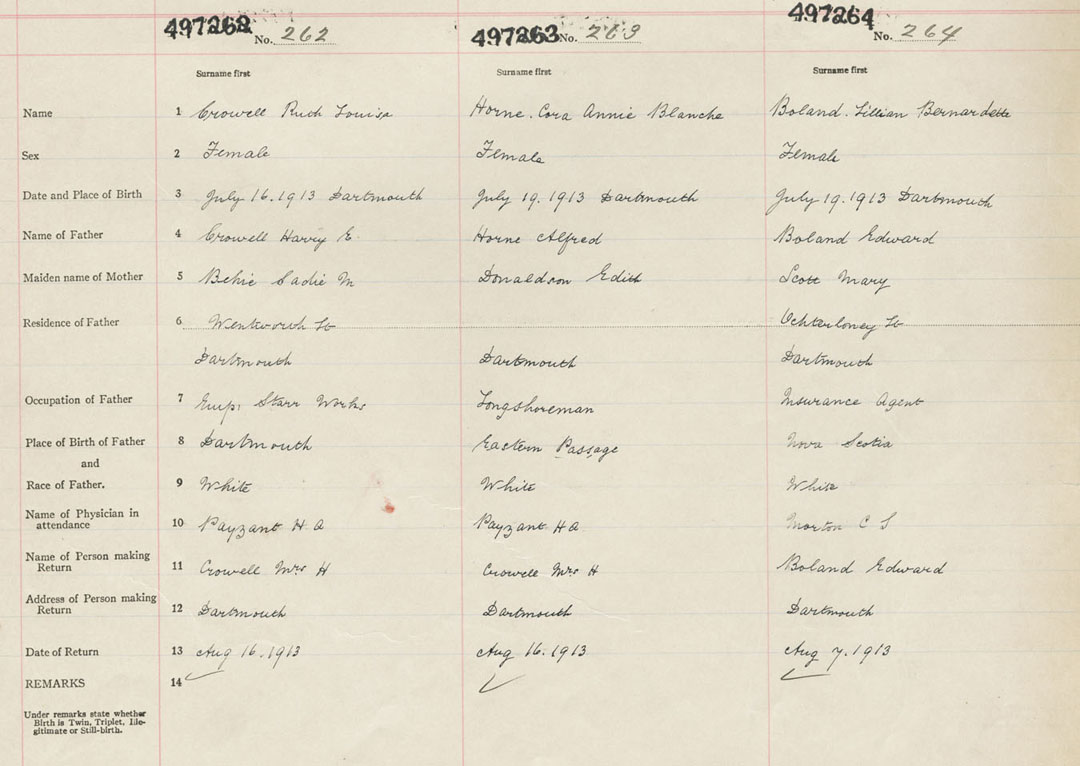 497262 No. 262 497263 No. 263 497264 No. 264
Surname first Surname first Surname first
Name 1 Crowell Ruth Louisa Horne. Cora Annie Blanche Boland. Lillian Bernardette
Sex 2 Female Female Female
Date and Place of Birth 3 July 16.1913 Dartmouth July 19.1913 Dartmouth July 19.1913 Dartmouth
Name of Father 4 Crowell Harry E. Horne Alfred Boland Edward
Maiden name of Mother 5 Sadie M Donaldson Edith Scott Mary
Residence of Father 6 Wentworth St Ochterloney St
Dartmouth Dartmouth Dartmouth
Occupation of Father 7 Emp: Starr Works Longshoreman Insurance Agent
Place of Birth of Father 8 Dartmouth Eastern Passage Nova Scotia
and
Race of Father. 9 White White White
Name of Physician in
attendance 10 Payzant H A Payzant H A Morton C S
Name of Person making
Return 11 Crowell Mrs H Crowell Mrs H Boland Edward
Address of Person making
Return 12 Dartmouth Dartmouth Dartmouth
Date of Return 13 Aug 16.1913 Aug 16.1913 Aug 7.1913
REMARKS 14
Under remarks state whether
Birth is Twin, Triplet, Ille-
gitimate or Still-birth.